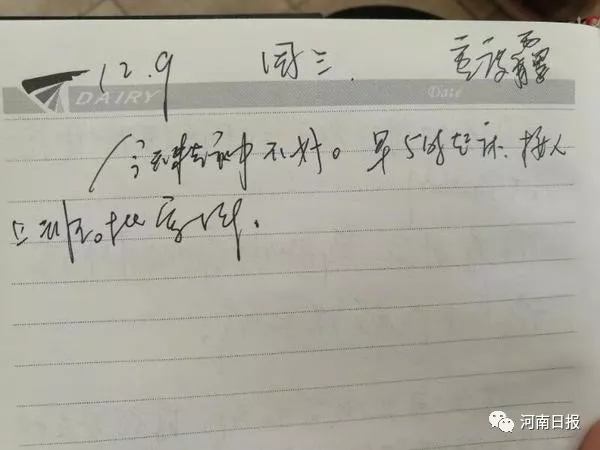 12.9 周三. 重度霾
DAIRY Date
今天天气不好。早5时起床.接人
上班。
河南日报